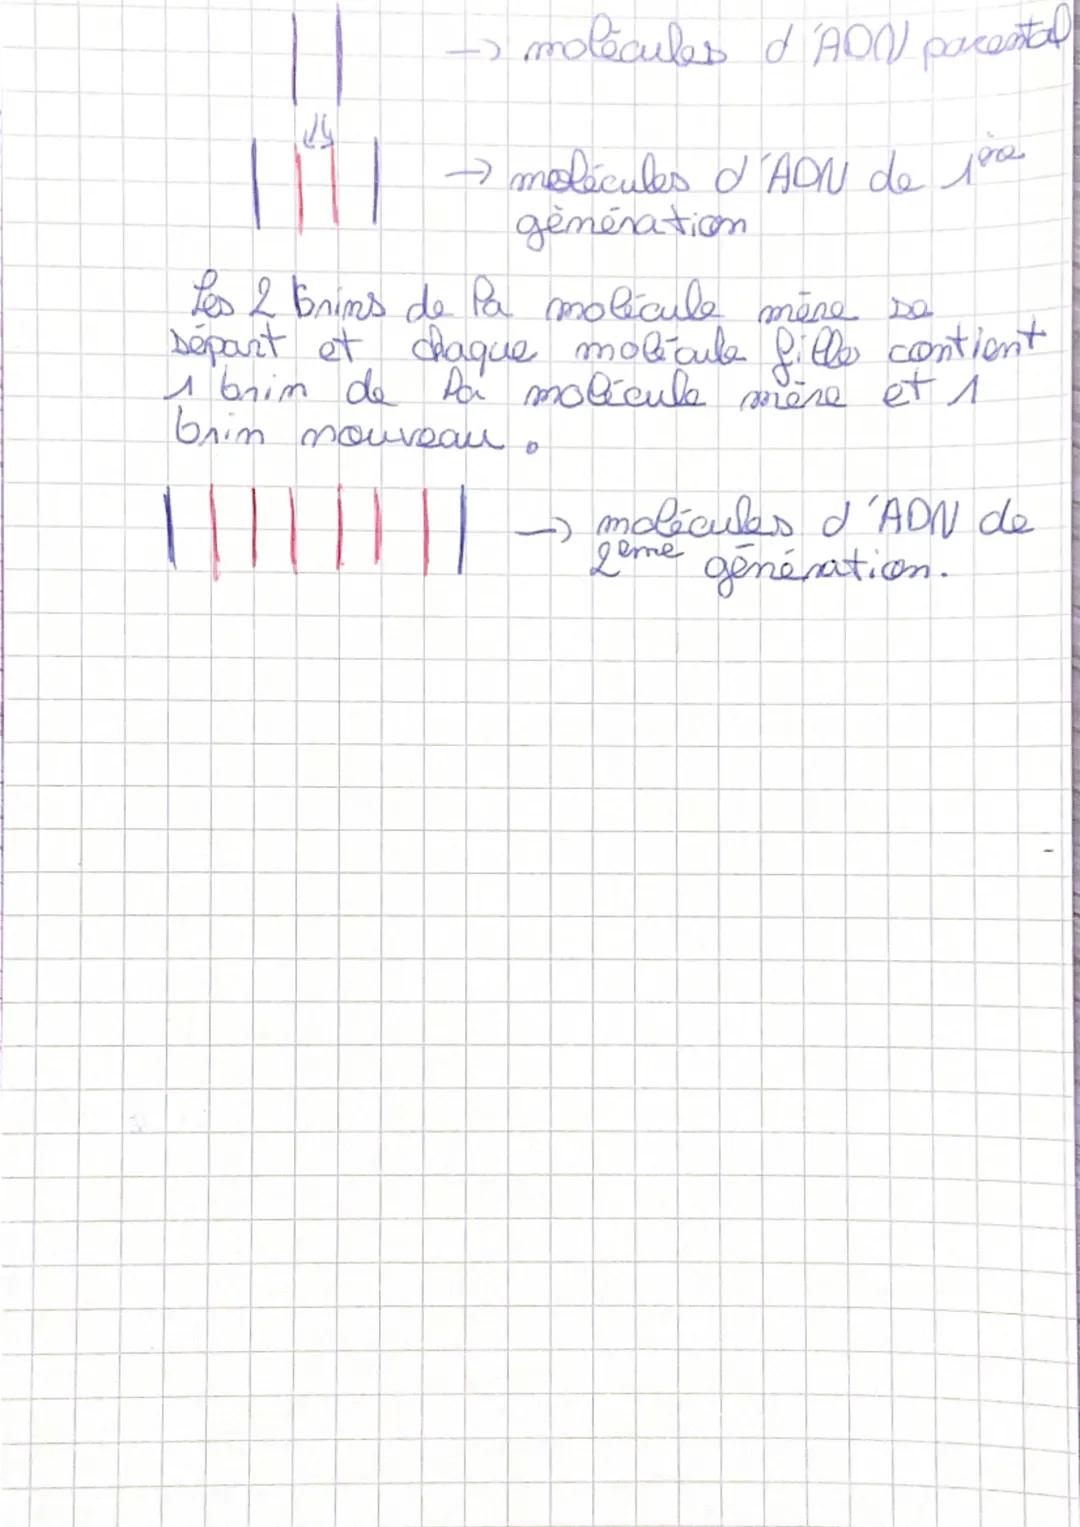 → molécules d'ADN parental
→ molécules d'ADN de 1ère
génération
Les 2 brins de la molécule mère se
sépart et chaque molécule fille contient
1 brin de la molécule mère et 1
brin nouveau.
→ molécules d'ADN de
2eme génération.